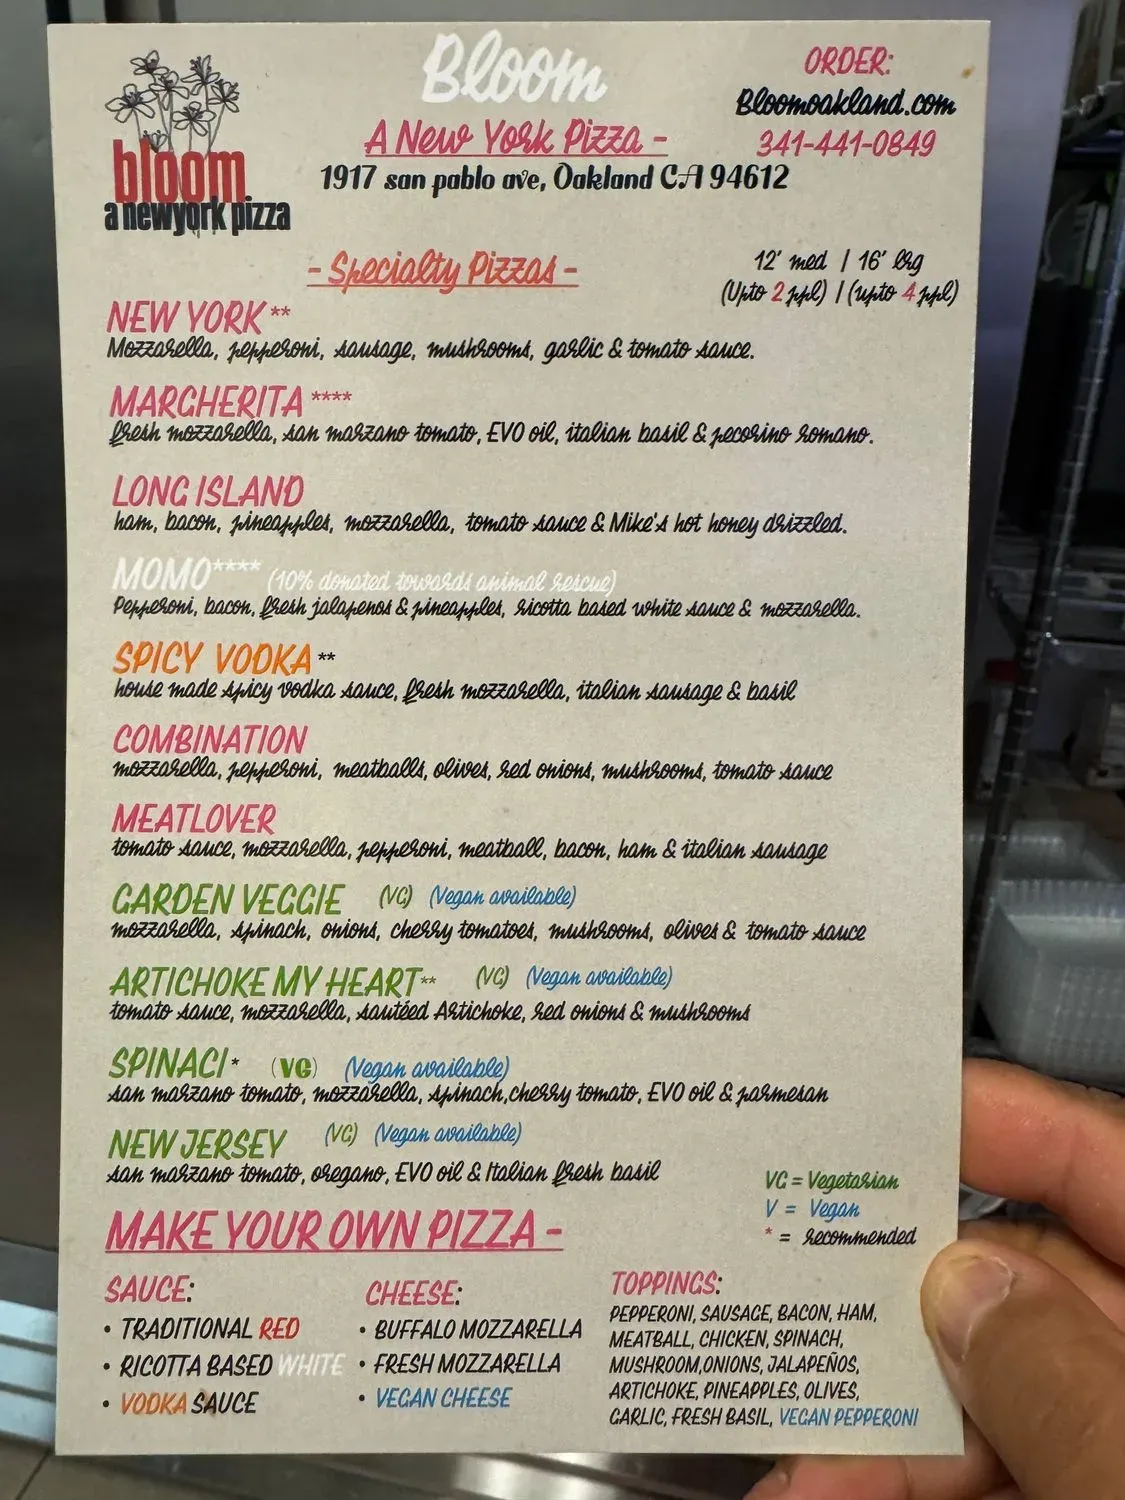 bloom
a newyork pizza
Bloom
A New York Pizza -
1917 san pablo ave, Oakland CA 94612
ORDER:
Bloomoakland.com
341-441-0849
- Specialty Pizzas -
12' med | 16' lrg
(Upto 2 ppl) | (upto 4 ppl)
NEW YORK **
Mozzarella, pepperoni, sausage, mushrooms, garlic & tomato sauce.
MARGHERITA ****
fresh mozzarella, san marzano tomato, EVO oil, italian basil & pecorino romano.
LONG ISLAND
ham, bacon, pineapples, mozzarella, tomato sauce & Mike's hot honey drizzled.
MOMO**** (10% donated towards animal rescue)
Pepperoni, bacon, fresh jalapenos & pineapples, ricotta based white sauce & mozzarella.
SPICY VODKA **
house made spicy vodka sauce, fresh mozzarella, italian sausage & basil
COMBINATION
mozzarella, pepperoni, meatballs, olives, red onions, mushrooms, tomato sauce
MEATLOVER
tomato sauce, mozzarella, pepperoni, meatball, bacon, ham & italian sausage
GARDEN VEGGIE (VG) (Vegan available)
mozzarella, spinach, onions, cherry tomatoes, mushrooms, olives & tomato sauce
ARTICHOKE MY HEART** (VG) (Vegan available)
tomato sauce, mozzarella, sautéed Artichoke, red onions & mushrooms
SPINACI * (VG) (Vegan available)
san marzano tomato, mozzarella, spinach,cherry tomato, EVO oil & parmesan
NEW JERSEY (VG) (Vegan available)
san marzano tomato, oregano, EVO oil & Italian fresh basil
VG = Vegetarian
V = Vegan
* = recommended
MAKE YOUR OWN PIZZA -
SAUCE:
• TRADITIONAL RED
• RICOTTA BASED WHITE
• VODKA SAUCE
CHEESE:
• BUFFALO MOZZARELLA
• FRESH MOZZARELLA
• VEGAN CHEESE
TOPPINGS:
PEPPERONI, SAUSAGE, BACON, HAM,
MEATBALL, CHICKEN, SPINACH,
MUSHROOM,ONIONS, JALAPEÑOS,
ARTICHOKE, PINEAPPLES, OLIVES,
GARLIC, FRESH BASIL, VEGAN PEPPERONI